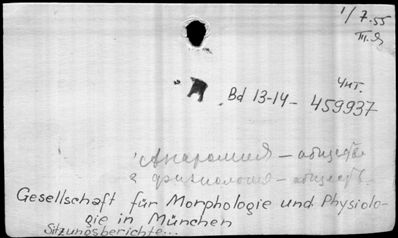 1/7.55
III.Я
Чит.
Bd 13-14- 459937
Анатомия - обществ.
2 физиология - обществ.
Gesellschaft für Morphologie und Physiolo-
gie in München
Sitzungsberichte...